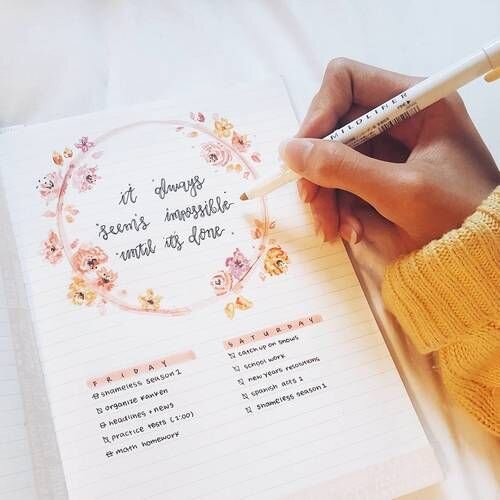 it always
seems impossible
until it's done.
MILDLINER
FRIDAY
shameless season 1
organize kanken
headlines + news
practice tests (2:00)
math homework
SATURDAY
catch up on shows
school work
new years resolutions
spanish acts 2
shameless season 1